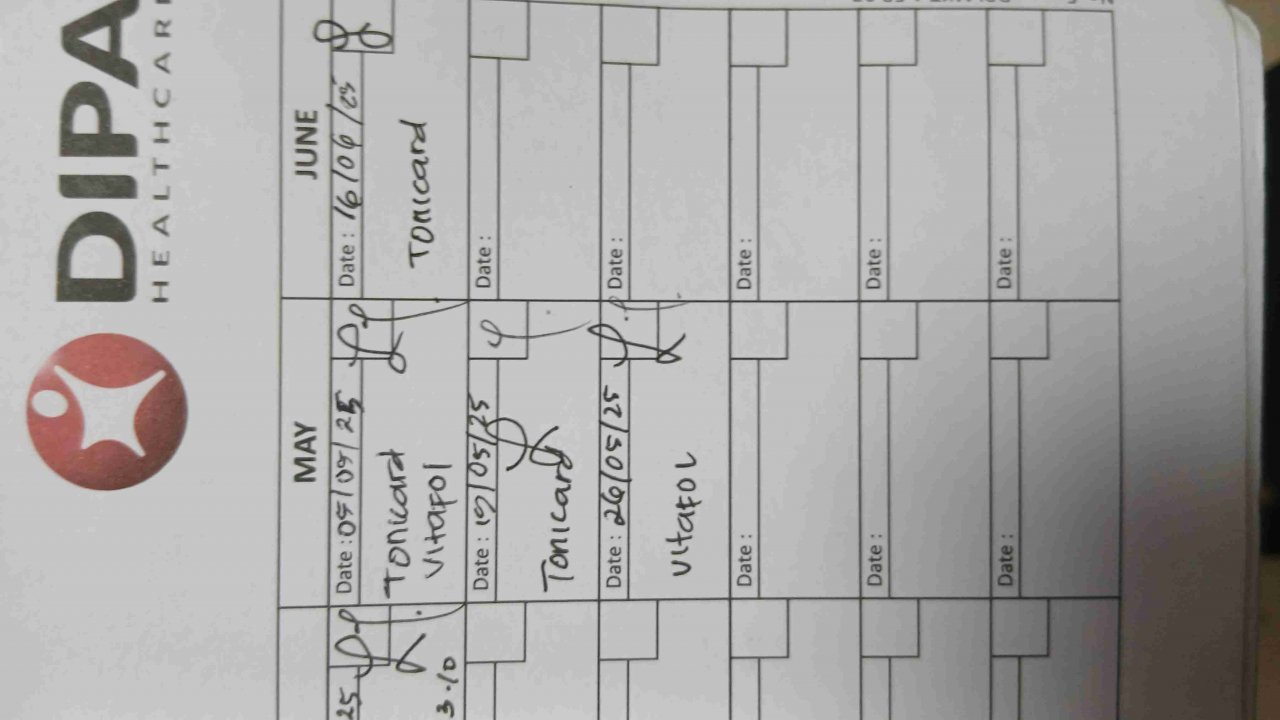 DIPA
HEALTHCARE
MAY
JUNE
Date : 05/05/25
Tonicard
Vitafol
Date : 16/06/25
Tonicard
Date : 19/05/25
Tonicard
Date :
Date : 26/05/25
Vitafol
Date :
Date :
Date :
Date :
Date :
Date :
Date :
25
3.10